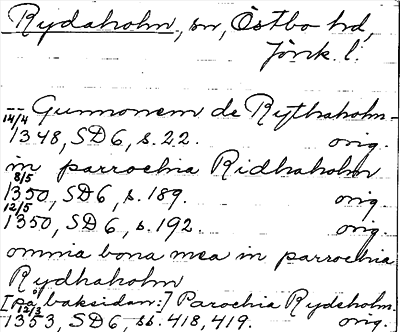 Rydaholm, sn, Östbo hd,
Jönk. l.
-- Gunnonem de Rythaholm -
14/4
1348, SD 6, s. 22. orig.
in parrochia Ridhaholm
8/5
1350, SD 6, s. 189. orig.
12/5
1350, SD 6, s. 192. orig.
omnia bona mea in parrochia
Rydhaholm
[på baksidan:] Parochia Rydsholm.
12/3
1353, SD 6, ss. 418, 419. orig.